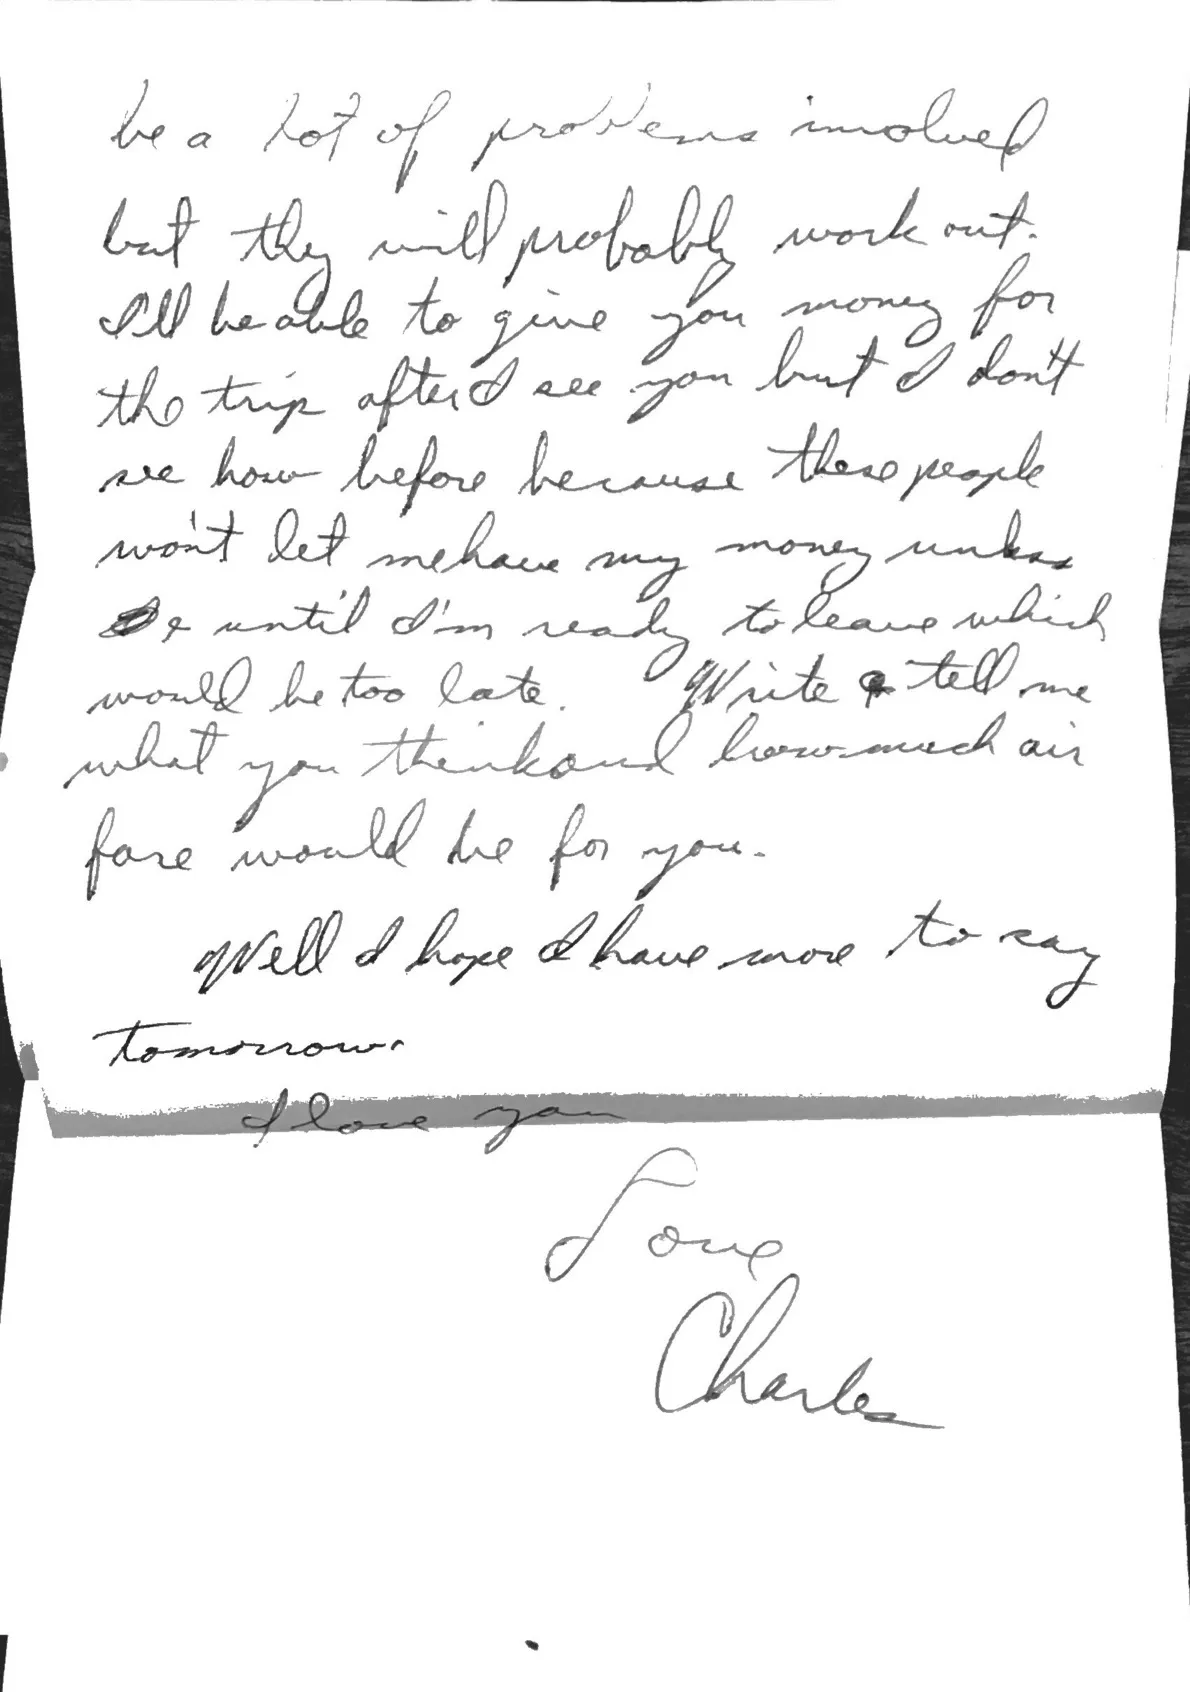 be a lot of problems involved
but they will probably work out.
I'll be able to give you money for
the trip after I see you but I don't
see how before because these people
won't let me have my money unless
until I'm ready to leave which
would be too late. Write & tell me
what you think and how much air
fare would be for you.
Well I hope I have more to say
tomorrow.
I love you
Love
Charles